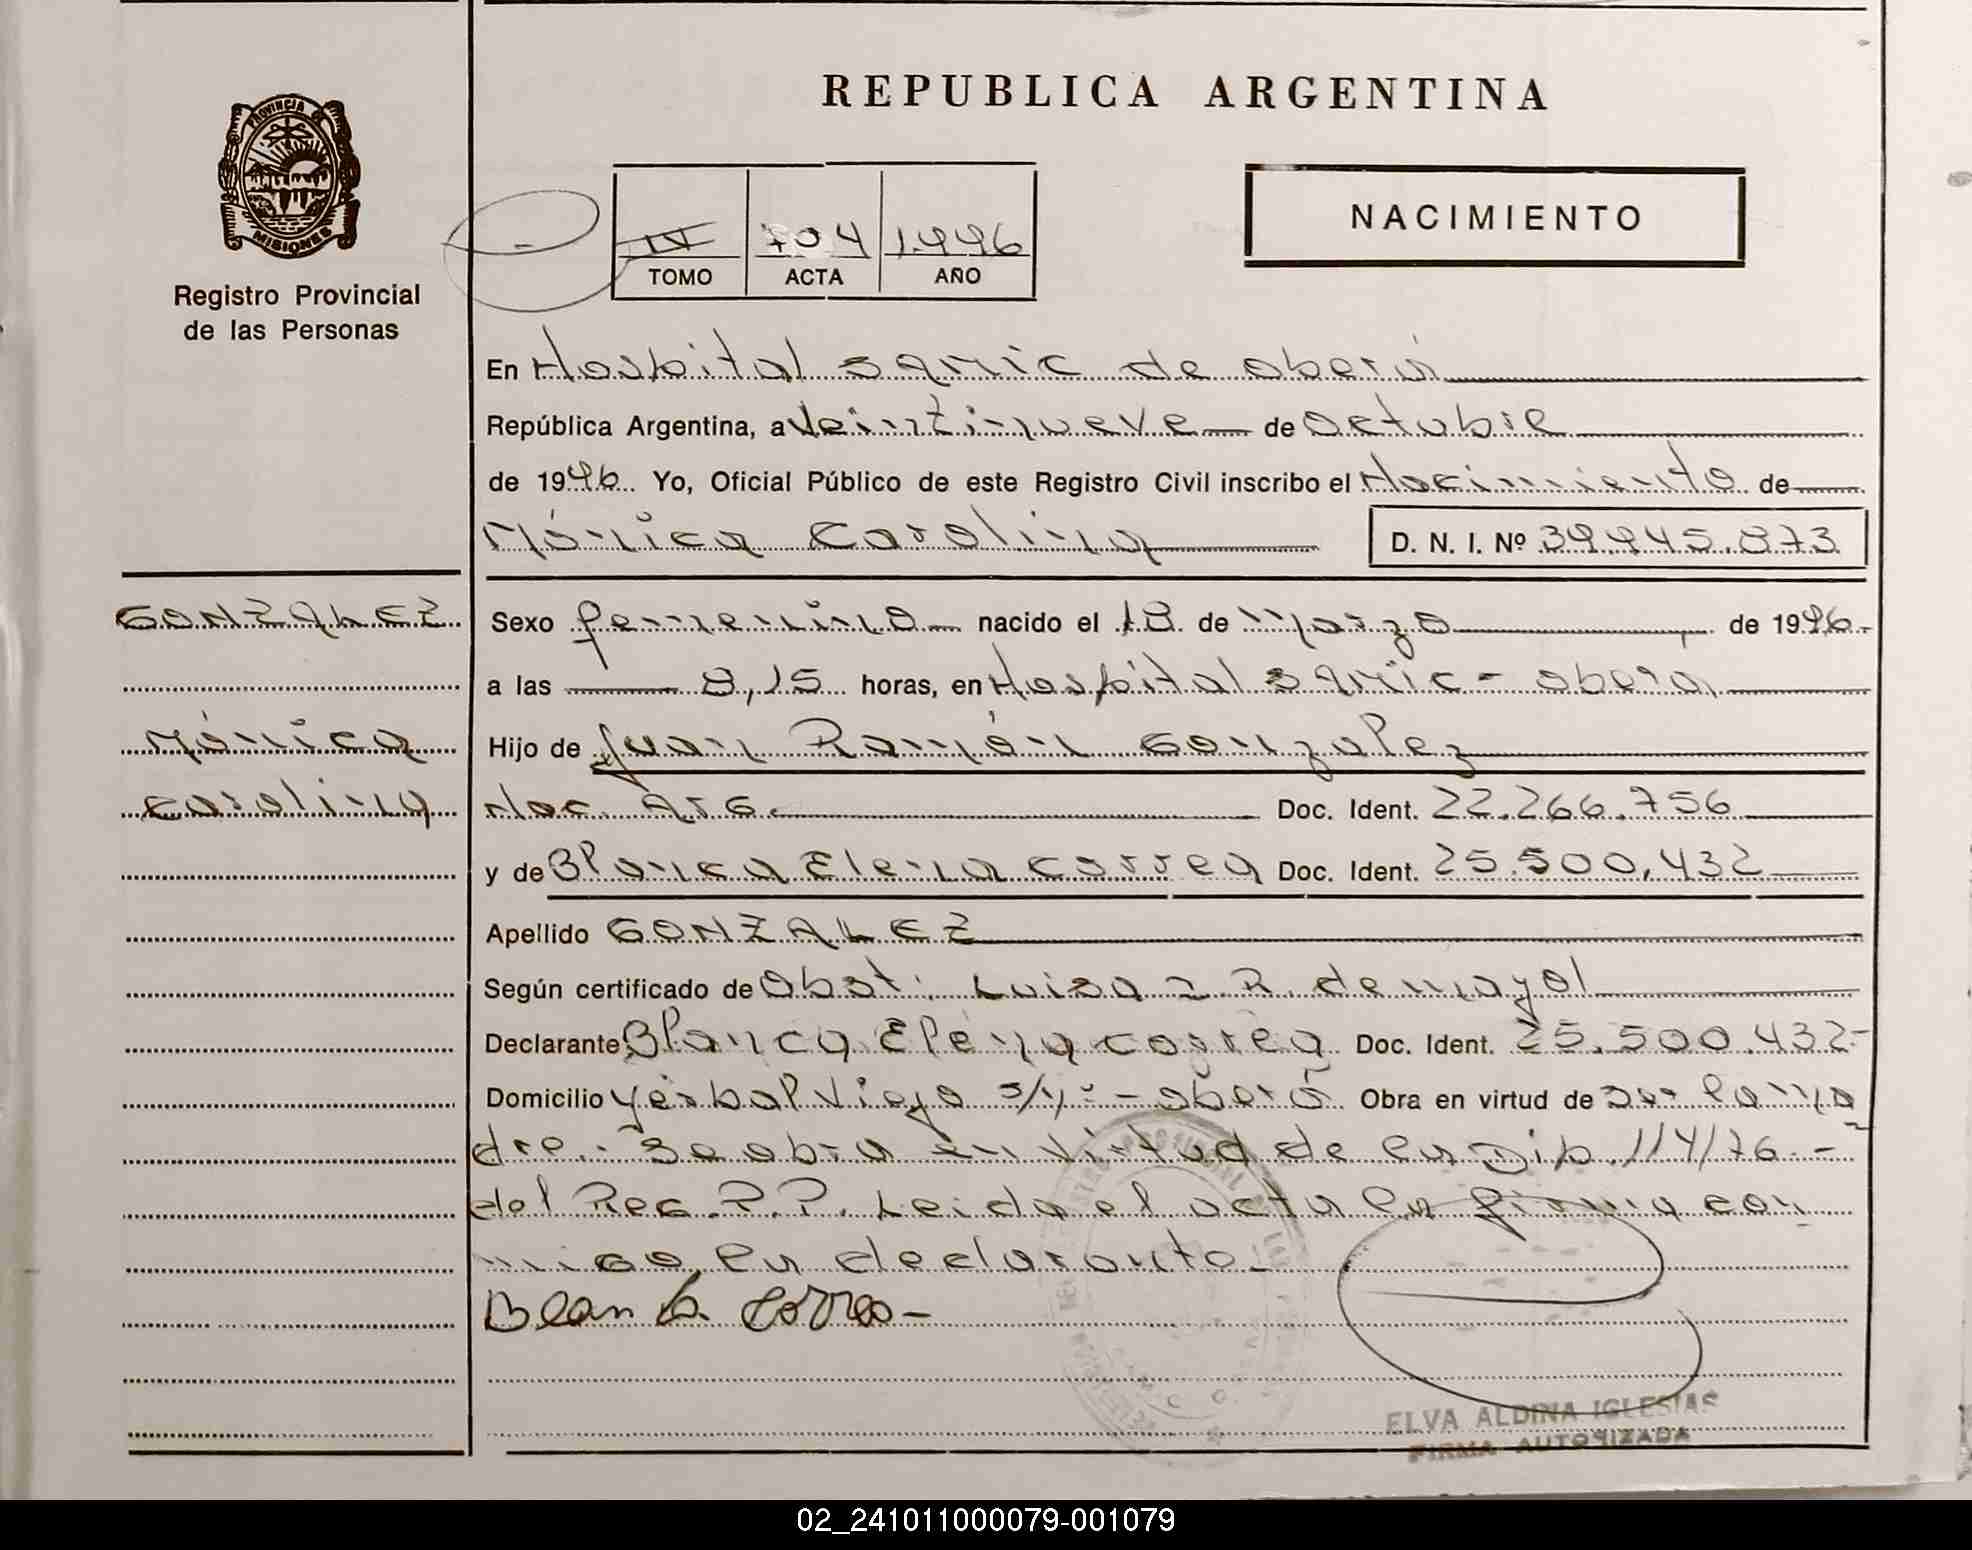 REPUBLICA ARGENTINA
PROVINCIA DE
MISIONES
Registro Provincial
de las Personas
IV 704 1.996
TOMO ACTA AÑO
NACIMIENTO
En Hospital Samic de oberá
República Argentina, a Veintinueve de Octubre
de 1996. Yo, Oficial Público de este Registro Civil inscribo el Nacimiento de
Mónica Carolina D. N. I. Nº 39.945.873
GONZALEZ
Mónica
Carolina
Sexo femenino nacido el 18 de marzo de 1996.-
a las 8,15 horas, en Hospital Samic - oberá
Hijo de Juan Ramón Gonzalez
Nac. Arg. Doc. Ident. 22.266.756
y de Blanca Elena Correa Doc. Ident. 25.500.432
Apellido GONZALEZ
Según certificado de Obst. Luisa R. de mayol
Declarante Blanca Elena Correa Doc. Ident. 25.500.432-
Domicilio Yerbal Viejo s/nº - oberá Obra en virtud de ser la ma
dre.- Se obra en virtud de la Dip. 114/76.-
del Reg. P.P. Leida el acta la firma con
migo, la declarante.-
Blanca Correa-
ELVA ALDINA IGLESIAS
FIRMA AUTORIZADA
02_241011000079-001079